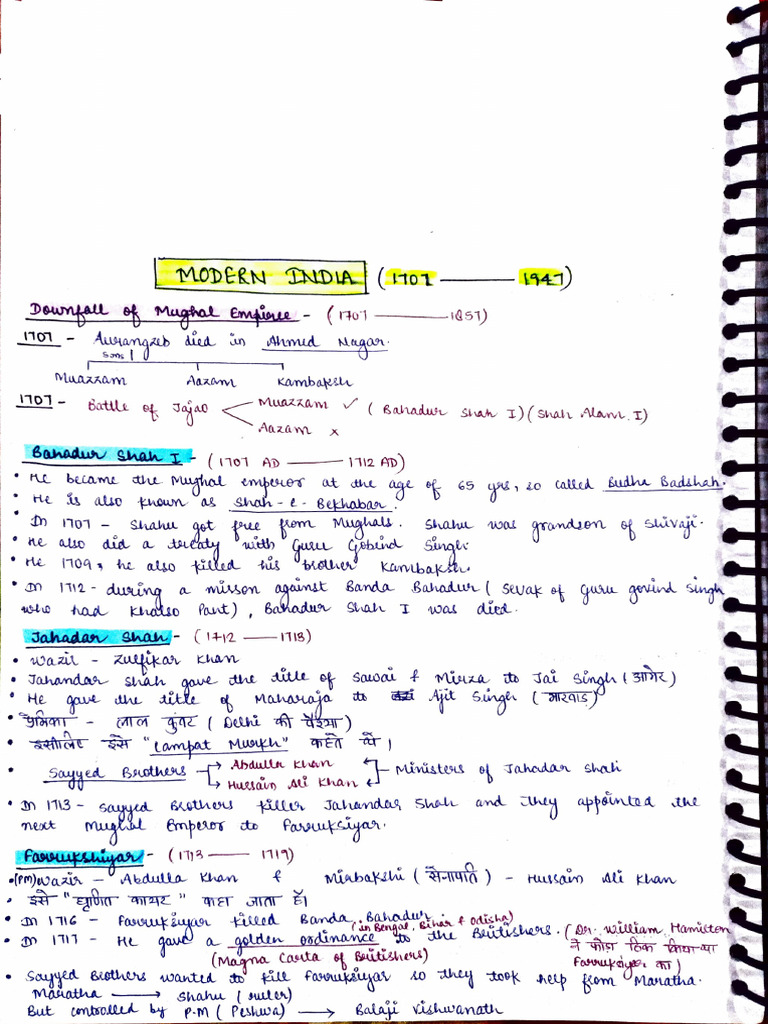 MODERN INDIA (1707 —— 1947)
Downfall of Mughal Empiree - (1707 —— 1857)
1707 - Aurangzeb died in Ahmed Nagar.
sons
Muazzam Aazam Kambaksh
1707 - Battle of Jajao Muazzam ✓ (Bahadur Shah I) (Shah Alam. I)
Aazam x
Bahadur Shah I - (1707 AD —— 1712 AD)
• He became the Mughal emperor at the age of 65 yrs, so called Budha Badshah.
• He is also known as Shah-e-Bekhabar.
• In 1707 - Shahu got free from Mughals. Shahu was grandson of Shivaji.
• He also did a treaty with Guru Gobind Singh
• He 1709, he also killed his brother Kambaksh.
• In 1712 - during a misson against Banda Bahadur (Sevak of Guru govind Singh
who had Khalso Pant), Bahadur Shah I was died.
Jahadar Shah - (1712 —— 1713)
• Wazir - Zulfikar Khan
• Jahandar Shah gave the title of Sawai & Mirza to Jai Singh (आमेर)
• He gave the title of Maharaja to Ajit Singh (मारवाड़)
• प्रेमिका - लाल कुंवर (Delhi की वेश्या)
• इसीलिए इसे "Lampat Murkh" कहते थे।
• Sayyed Brothers → Abdulla Khan ← Ministers of Jahadar Shah
→ Hussain Ali Khan ←
• In 1713 - Sayyed Brothers killer Jahandar Shah and they appointed the
next Mughal Emperor to Farruksiyar.
Farrukshiyar - (1713 —— 1719)
• (PM) Wazir - Abdulla Khan & Mirbakshi (सेनापति) - Hussain Ali Khan
• इसे "घृणित कायर" कहा जाता है।
• In 1716 - Farruksiyar killed Banda Bahadur
(in Bengal, Bihar & Odisha)
• In 1717 - He gave a golden ordinance to the Britishers. (Dr. William Hamilton
(Magna Carta of Britishers) ने फोड़ा ठिक किया था
Farruksiyar का)
• Sayyed Brothers wanted to kill Farruksiyar so they took help from Maratha.
Maratha → Shahu (ruler)
But controlled by P.M (Peshwa) → Balaji Vishwanath